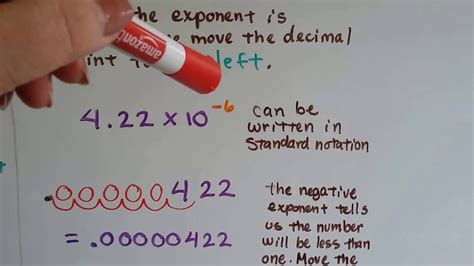 the exponent is
move the decimal
left.
amazon
4.22 x 10⁻⁶
can be
written in
Standard notation
.00000422
= .00000422
the negative
exponent tells
us the number
will be less than
one. Move the